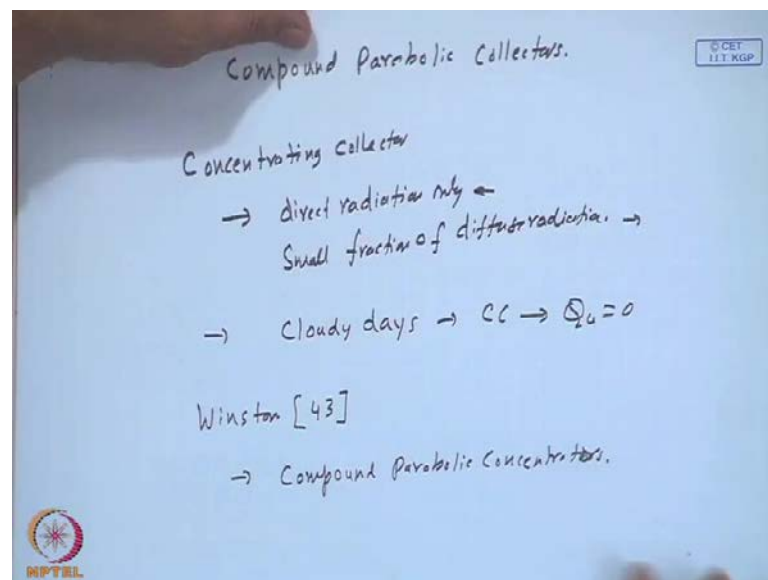 Compound Parabolic Collectors.
© CET
I.I.T. KGP
Concentrating Collector
→ direct radiation only ←
Small fraction of diffuse radiation. →
→ Cloudy days → CC → Qu = 0
Winston [43]
→ Compound Parabolic Concentrators.
NPTEL